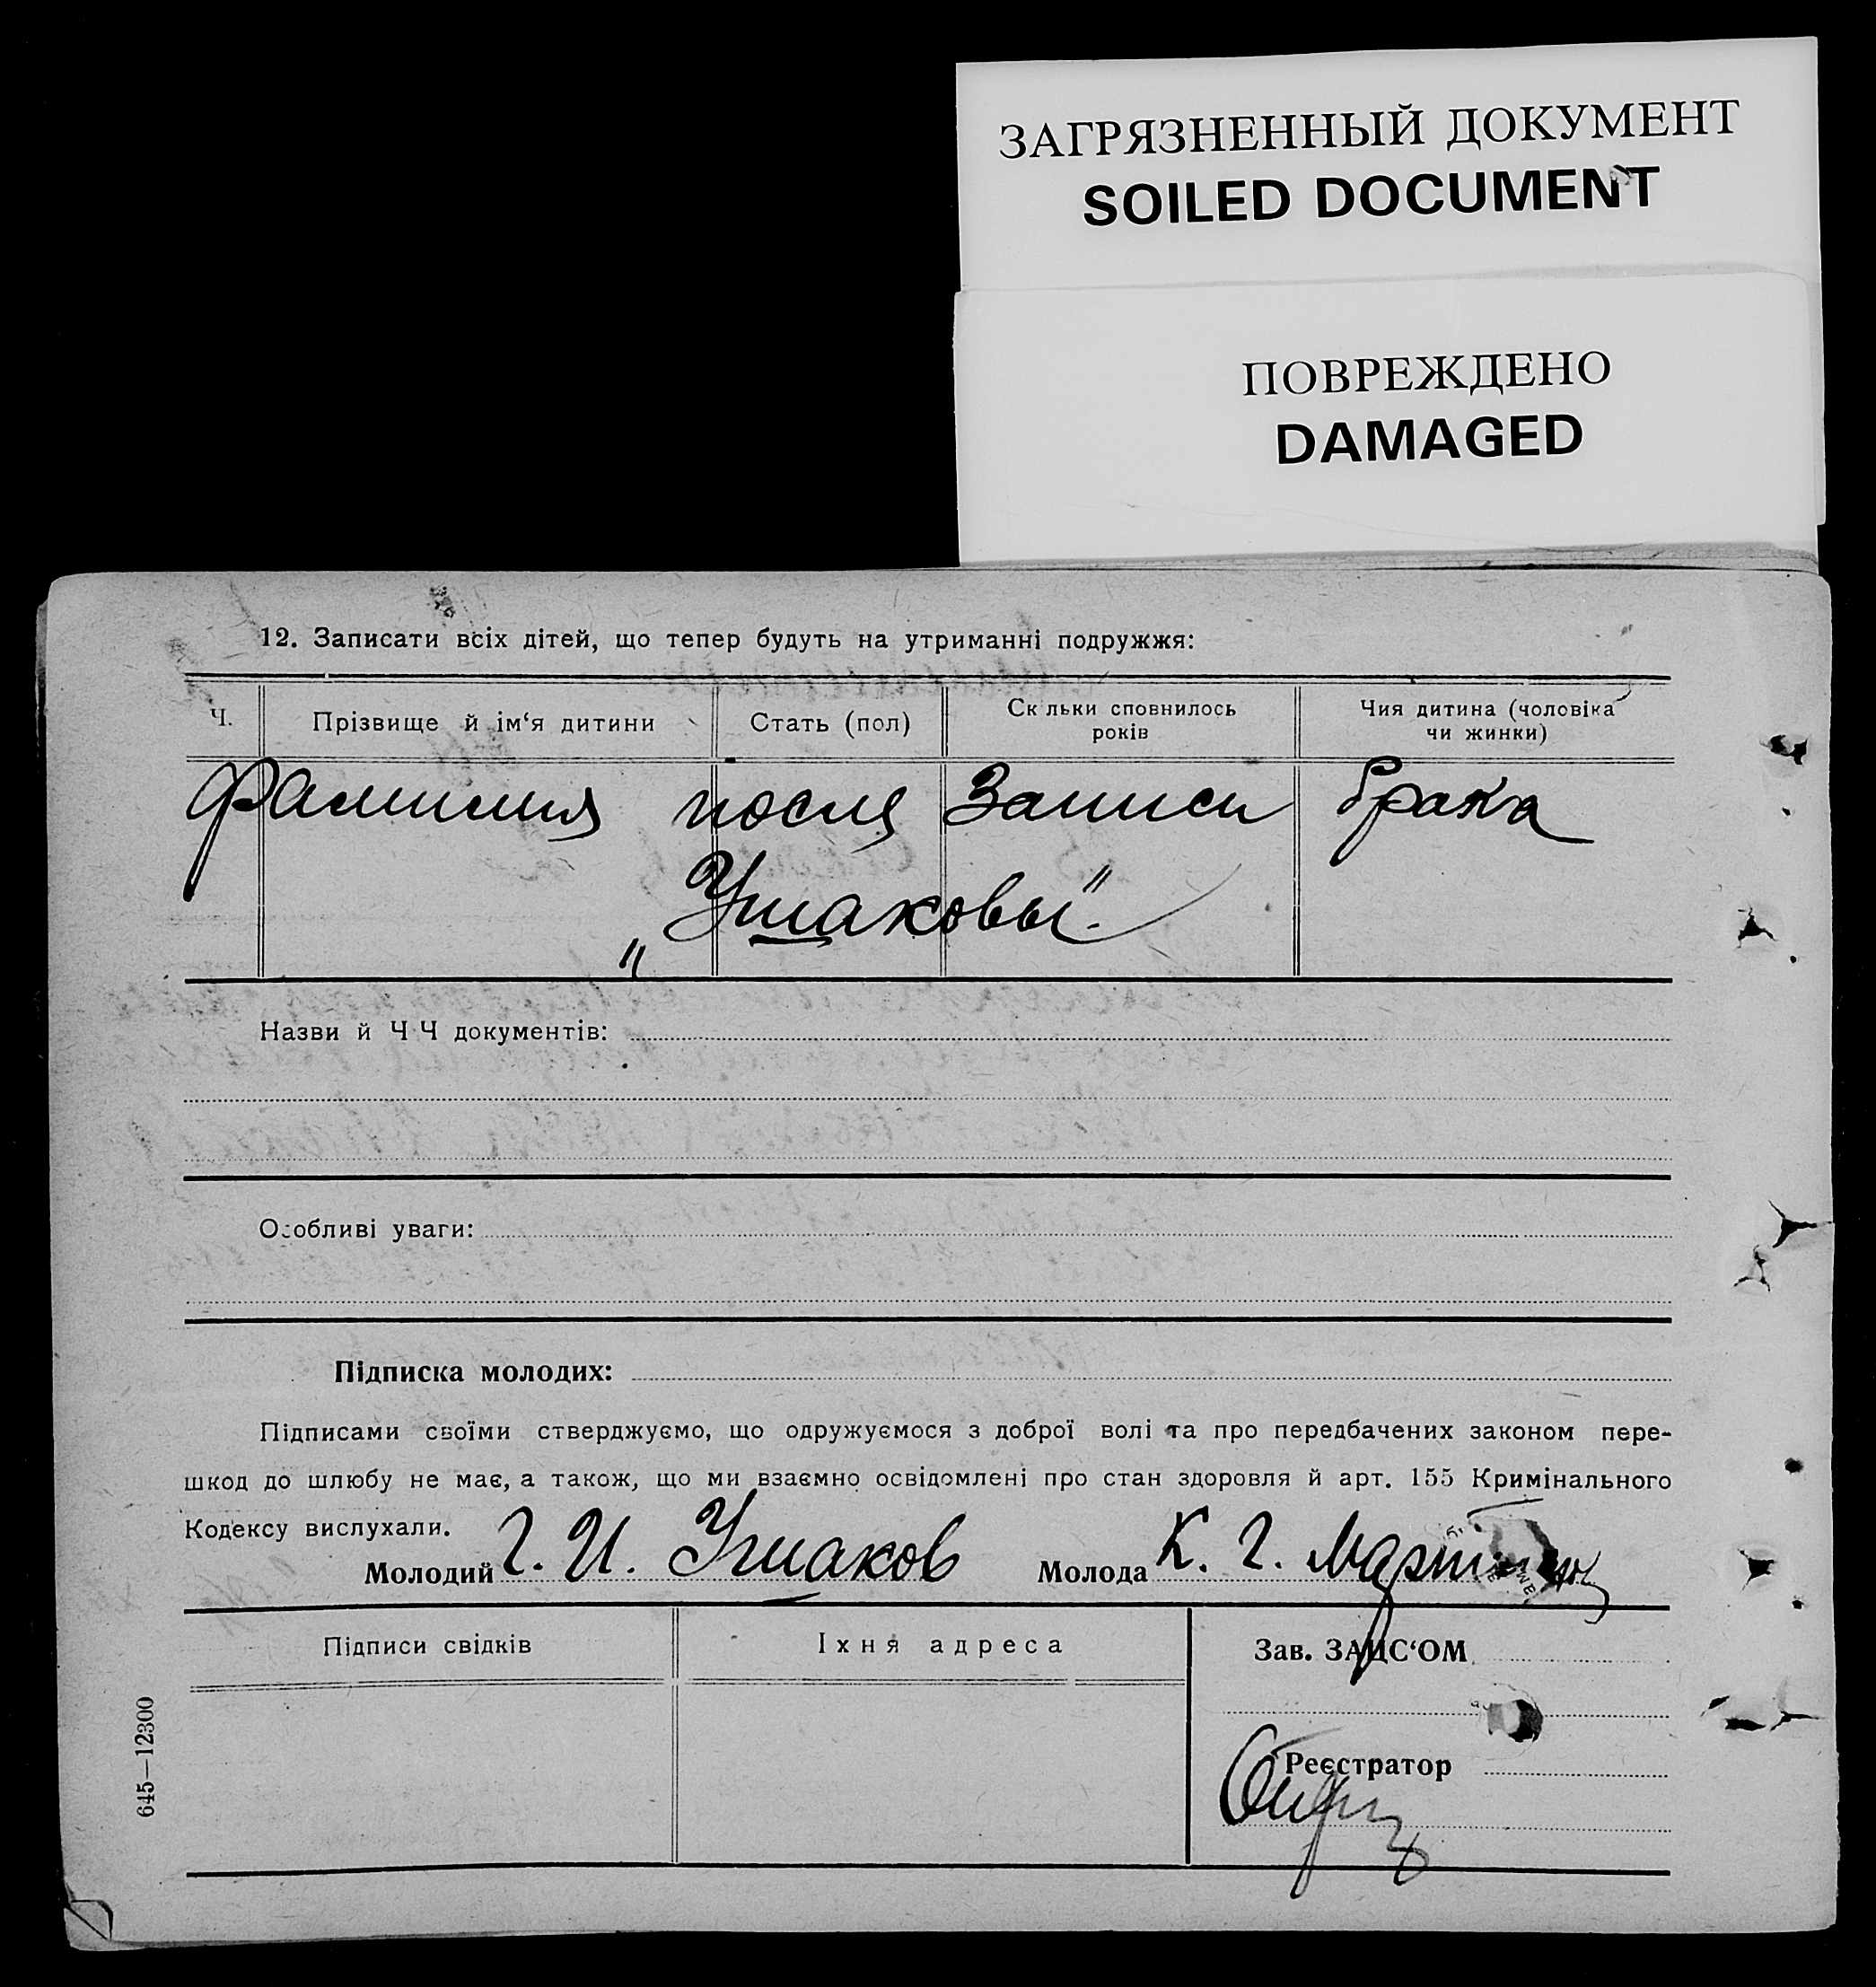 ЗАГРЯЗНЕННЫЙ ДОКУМЕНТ
SOILED DOCUMENT
ПОВРЕЖДЕНО
DAMAGED
12. Записати всіх дітей, що тепер будуть на утриманні подружжя:
Ч. Прізвище й ім‘я дитини Стать (пол) Ск льки сповнилось років Чия дитина (чоловіка чи жинки)
Фамилия после Записи брака
„Ушаковы“.
Назви й Ч Ч документів:
Особливі уваги:
Підписка молодих:
Підписами своїми стверджуємо, що одружуємося з доброї волі та про передбачених законом пере-
шкод до шлюбу не має, а також, що ми взаємно освідомлені про стан здоровля й арт. 155 Кримінального
Кодексу вислухали.
Молодий Г. И. Ушаков Молода К. Г.
Підписи свідків Їхня адреса Зав. ЗАЦС‘ОМ
Реєстратор
645—12300